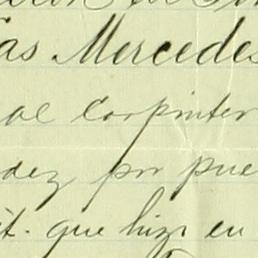 as Mercedes
al Carpinter
dez por pue
it. que hizo en